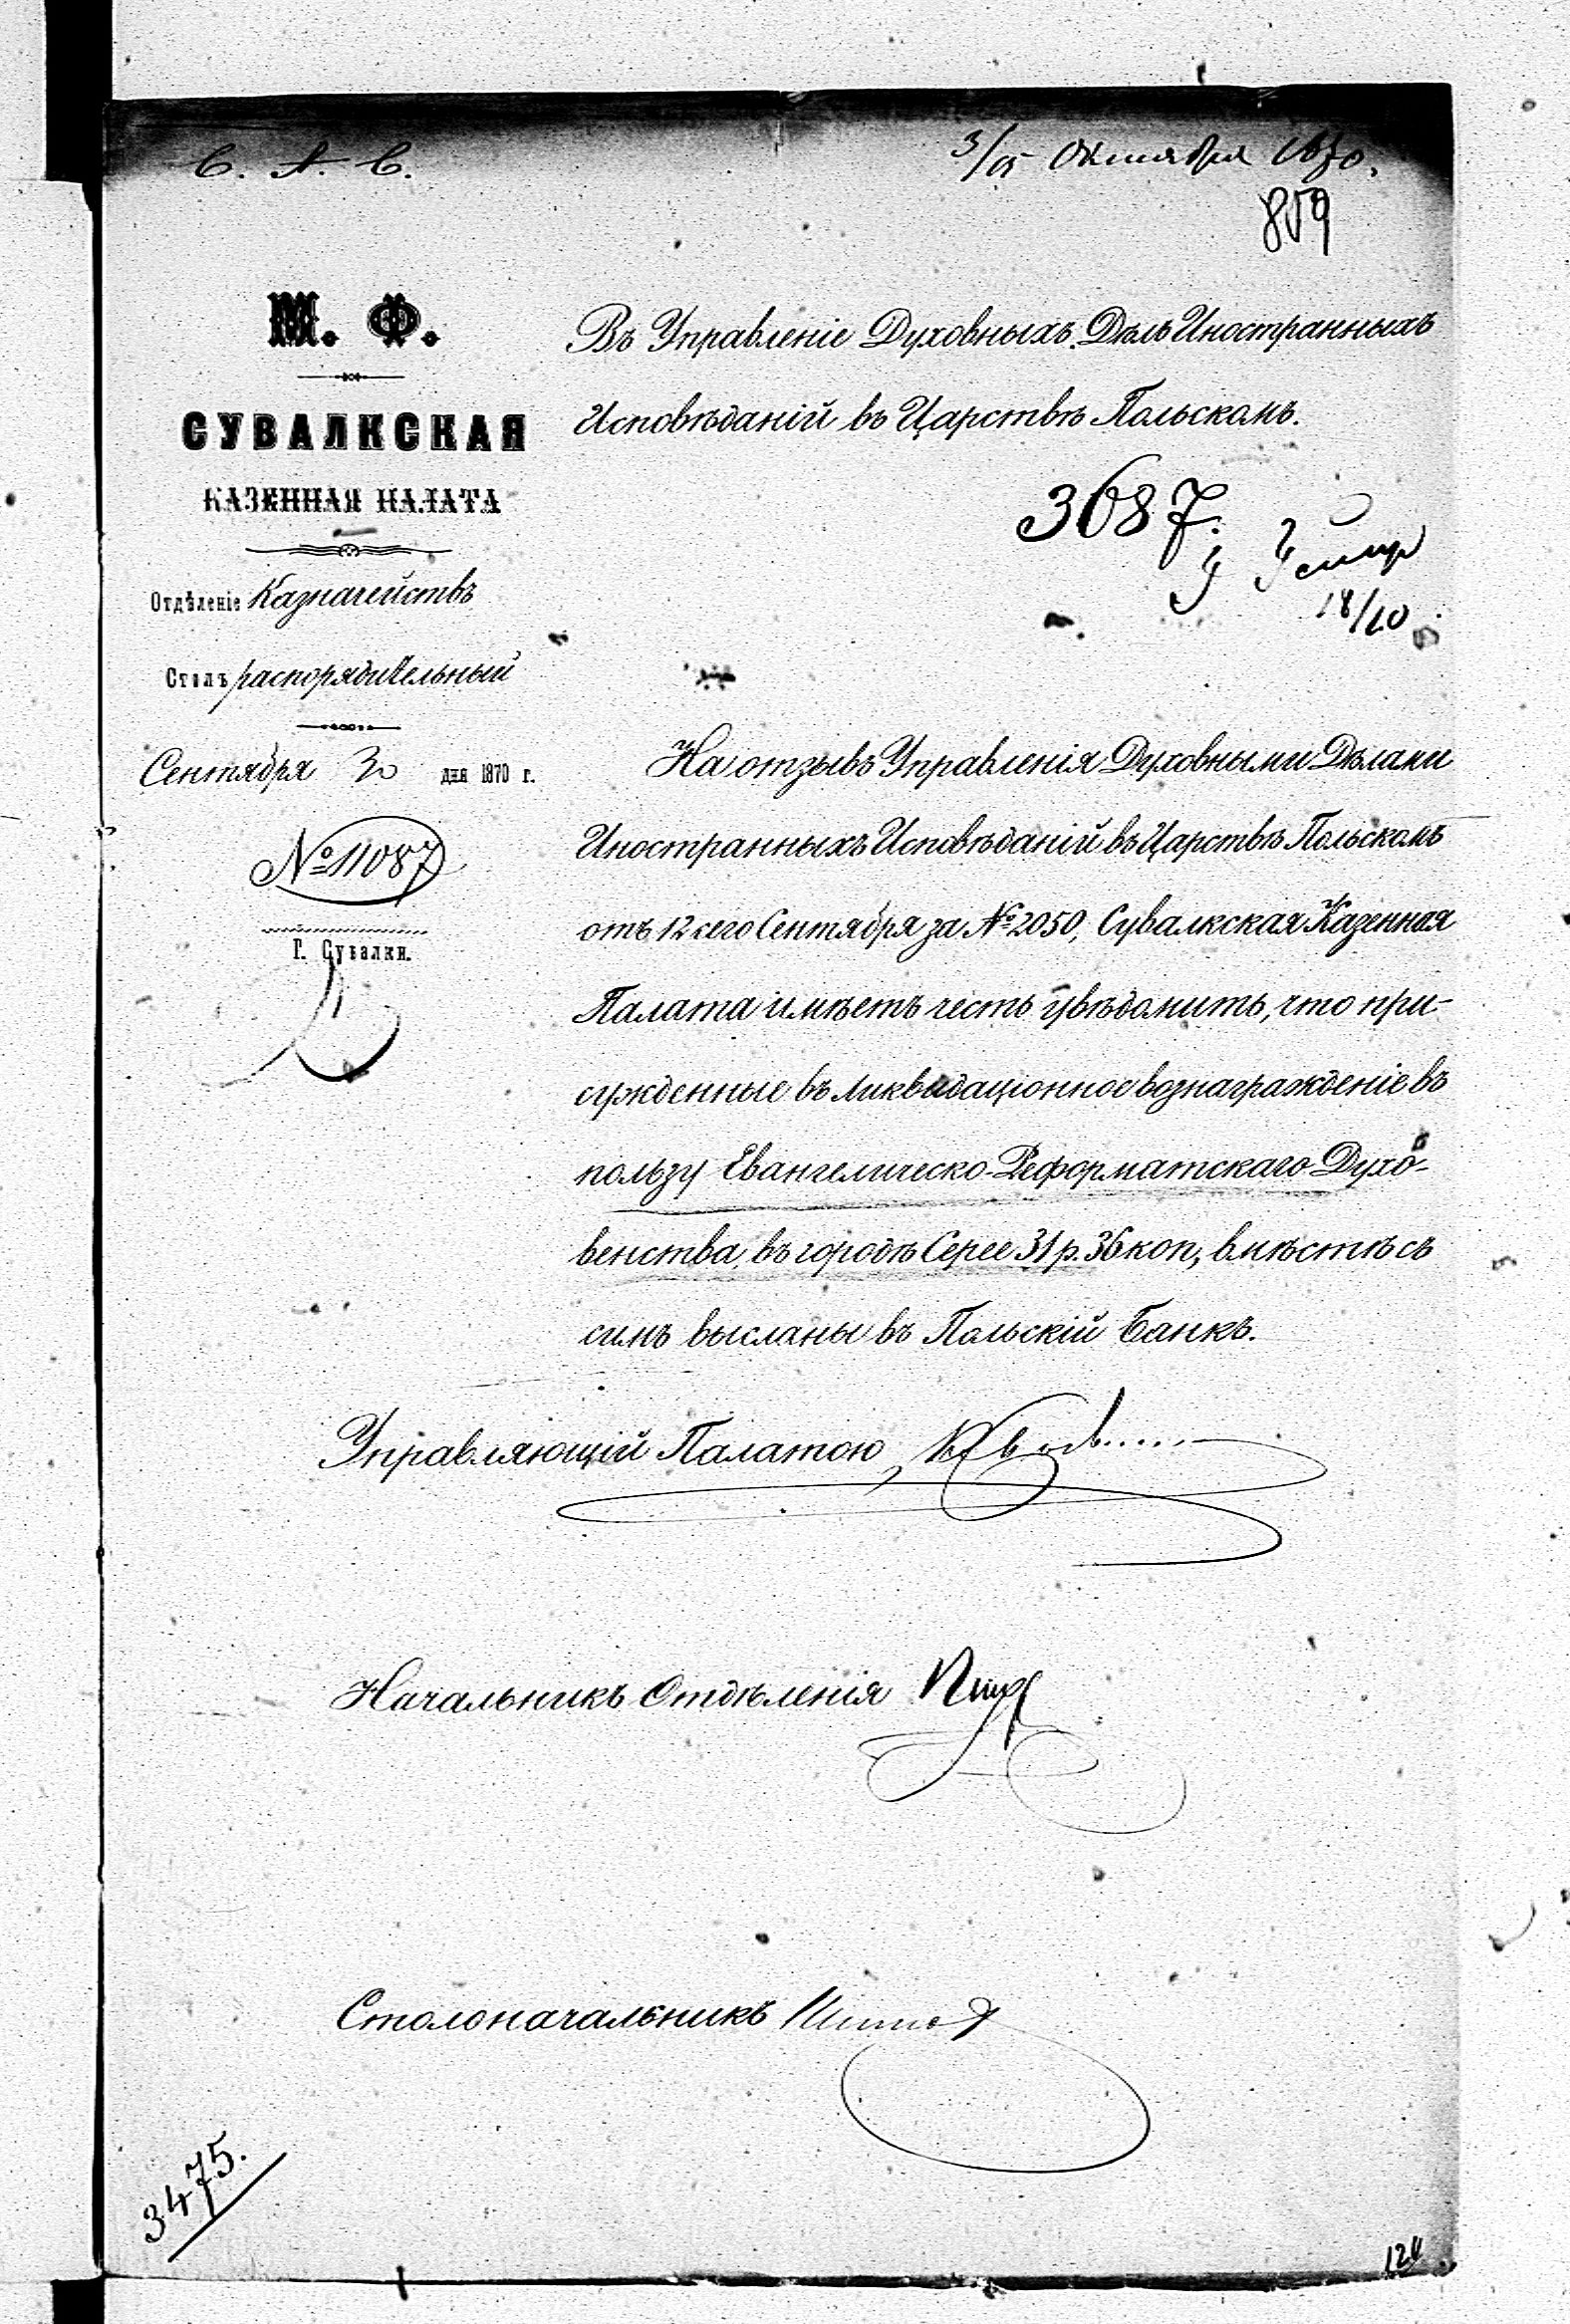 С. А. С.
3/15 Октября 1870.
859
М. Ф.
СУВАЛКСКАЯ
КАЗЕННАЯ ПАЛАТА
Отдѣленіе Казначействъ
Столъ распорядительный
Сентября 30 дня 1870 г.
№ 11087
Г. Сувалки.
Въ Управленіе Духовныхъ Дѣлъ Иностранныхъ
Исповѣданій въ Царствѣ Польскомъ.
3687.
18/10
На отзывъ Управленія Духовными Дѣлами
Иностранныхъ Исповѣданій въ Царствѣ Польскомъ
отъ 12 сего Сентября за № 2050, Сувалкская Казенная
Палата имѣетъ честь увѣдомить, что при-
сужденные въ ликвидаціонное вознагражденіе въ
пользу Евангелическо-Реформатскаго Духо-
венства, въ городѣ Серее 31 р. 36 коп, вмѣстѣ съ
симъ высланы въ Польскій Банкъ.
Управляющій Палатою
Начальникъ Отдѣленія
Столоначальникъ
3475.